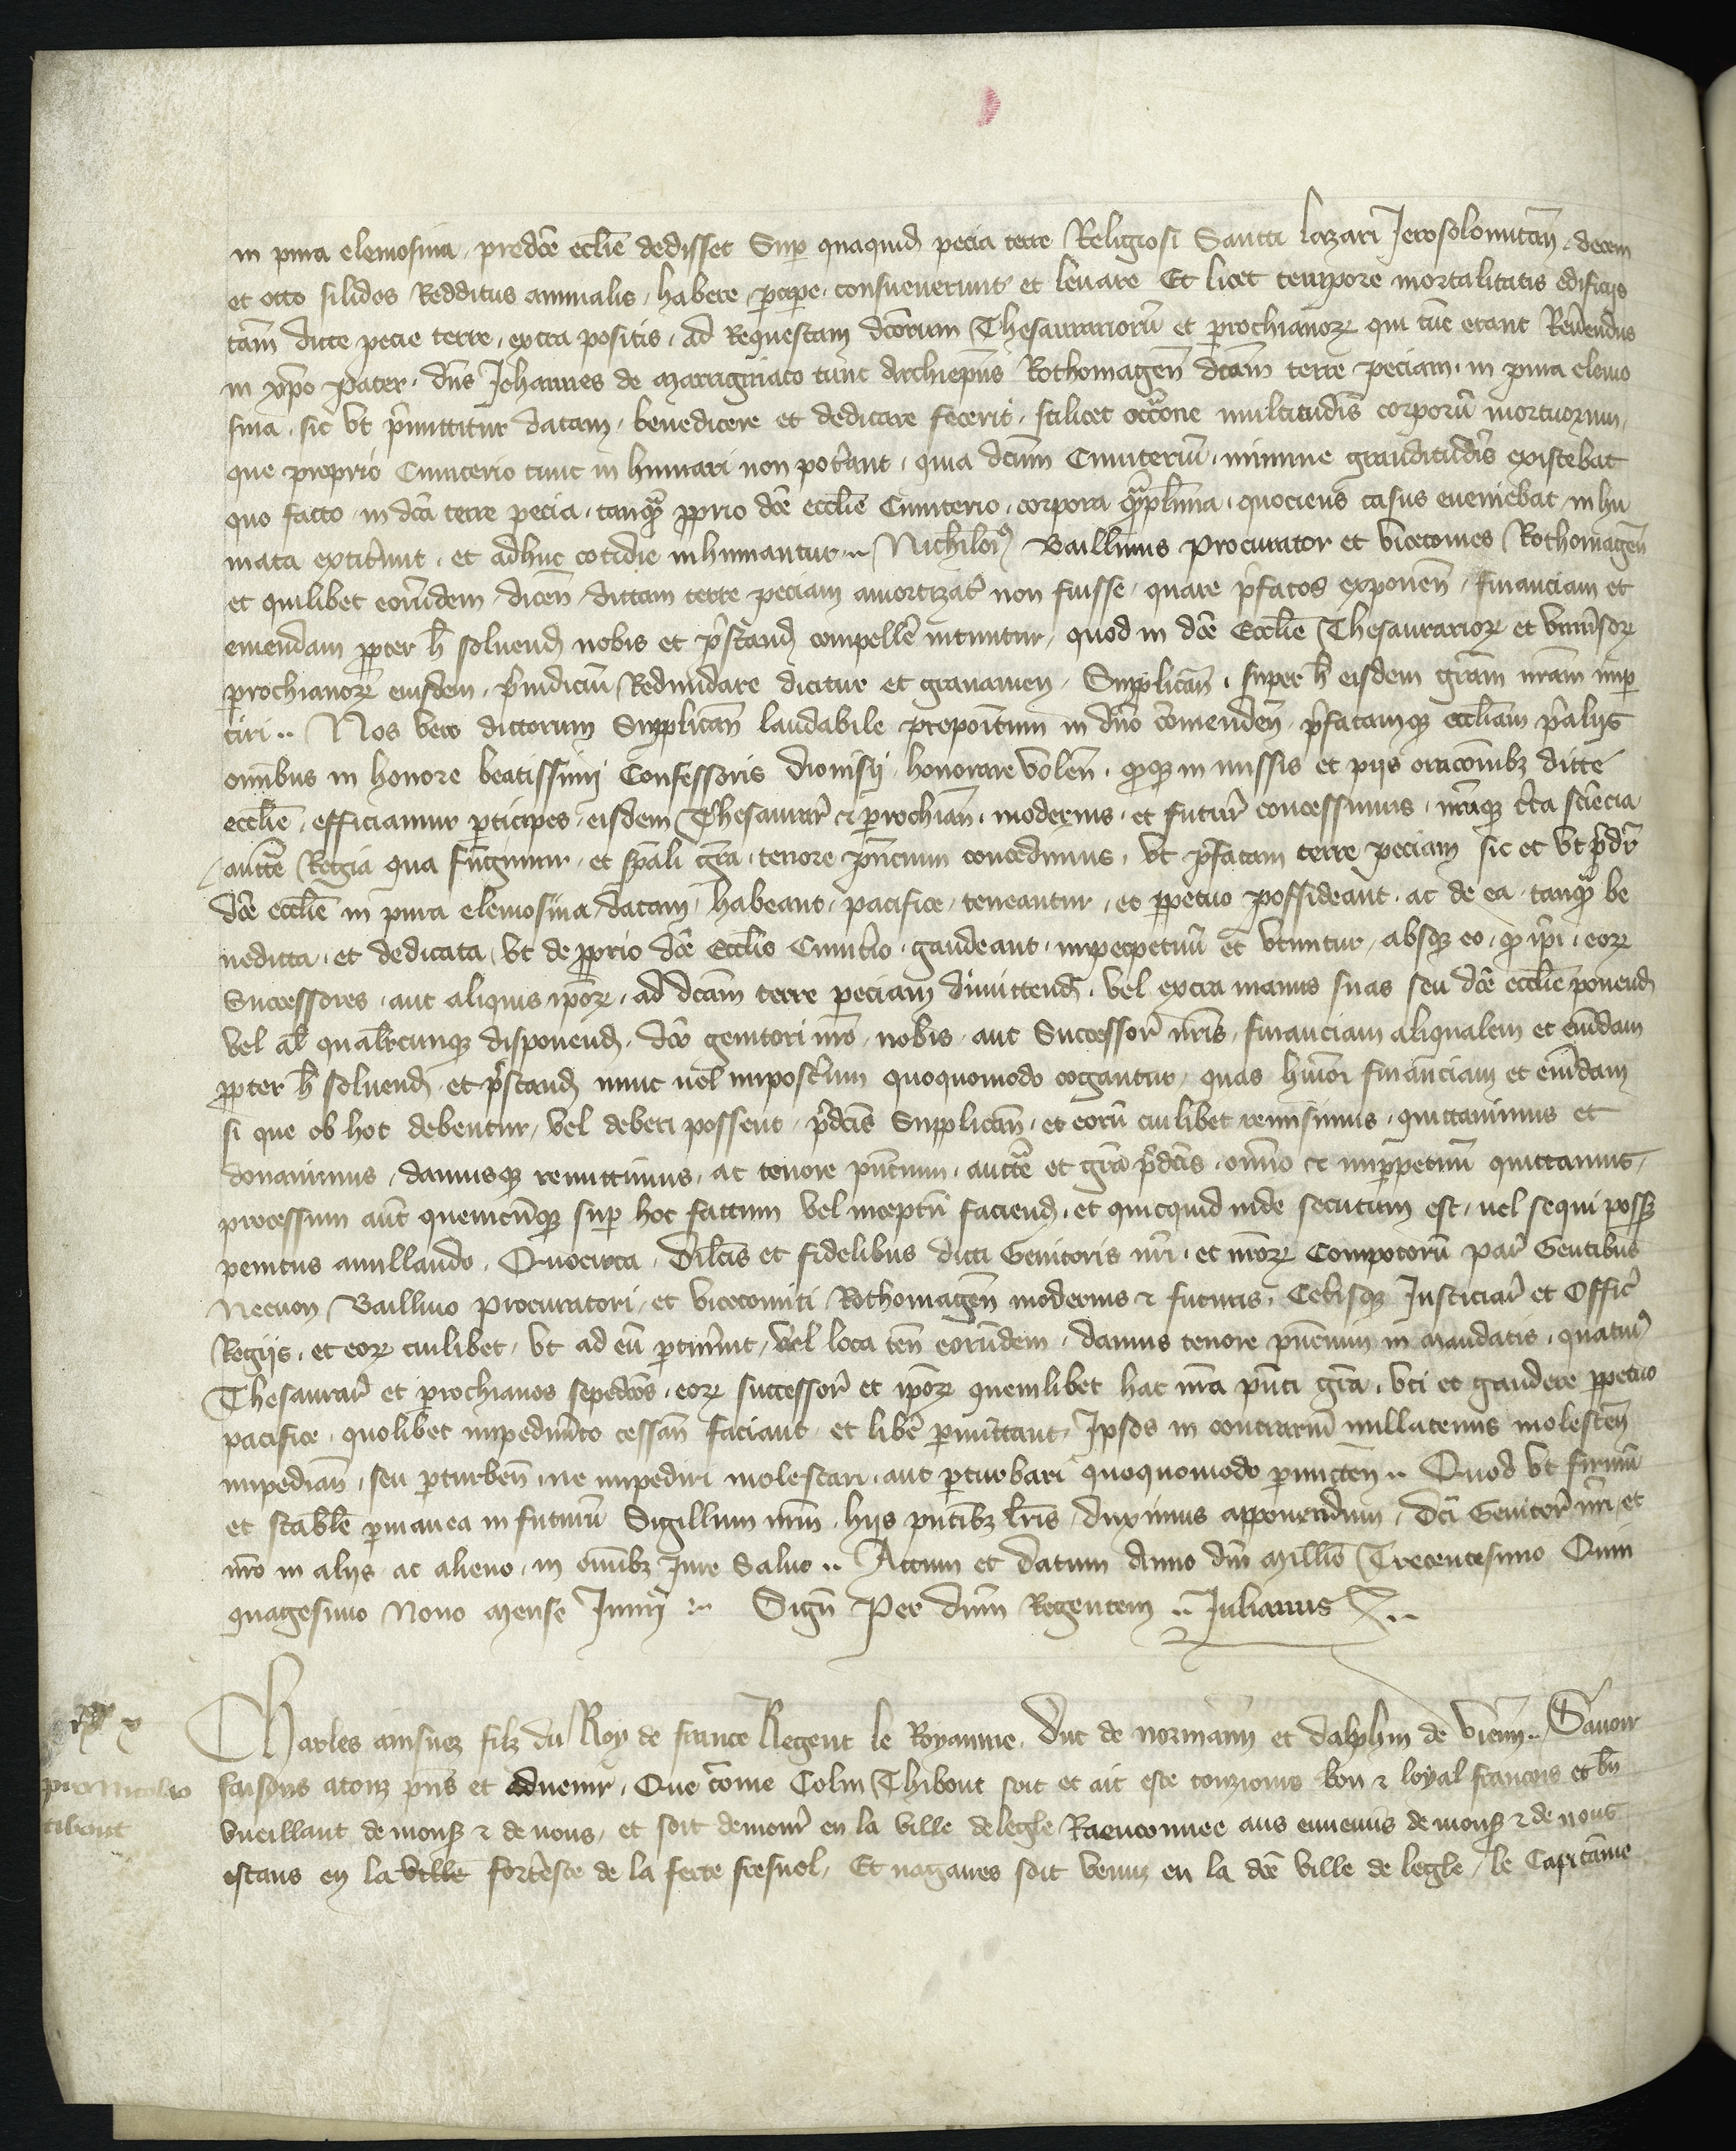 in pura elemosina, predce ecclie dedisset Sup quaquid pecia terre Religiosi Sancti Lazari Jerosolomitan, decem
et octo solidos Redditus annualis, habere, pcipe, consueverunt et levare Et licet tempore mortalitatis edificiis
tam dicte pecie terre, extra positis, ad Requestam dcorum Thesaurariorum et prochianor qui tunc erant Reverendus
in xpo Pater, dns Johannes de Marrigniaco tunc Archiepus Rothomagen dcam terre peciam, in pura elemo
sina, sic ut pmittitur datam, benedicere et dedicare fecerit, scilicet occone multitudis corporu mortuorum,
que proprio Cimiterio tunc in humari non poterant, quia dcum Cimiteriu, minime granditudis existebat
quo facto in dca terre pecia, tanq pprio dce ecclie Cimiterio, corpora qplima, quociens casus eveniebat in hu
mata extiterunt, et adhuc cotidie inhumantur .. Nichiloi9 Baillivus Procurator et vicecomes Rothomagen
et quilibet eorumdem, dicen dictam terre peciam amortizat non fuisse, quare pfatos exponen, financiam et
emendam ppter h solvend nobis et pstand compelle nituntur, quod in dce Ecclie Thesaurarior et univsor
prochianor eiusdem, piudiciu Redundare dicitur et gravamen, Supplican, super h eisdem gram nram imp
tiri .. Nos vero dictorum Supplican laudabile propoitum in dno comenden, pfatamq eccliam p aliis
omibus in honore beatissimi Confessoris Dionisii, honorare volen, qq in missis et piis oracoibz dicte
ecclie, efficiamur pticipes, eisdem Thesaurar et prochian, modernis, et futur concessimus, nraq cta sciencia
aucte Regia qua fungimur, et spali gra, tenore pncium concedimus, ut pfatam terre peciam sic et ut pdr
dce ecclie in pura elemosina, datam, habeant, pacifice, teneantur, et ppetuo possideant, ac de ea, tanq be
nedicta, et dedicata, ut de pprio dce Ecclie Cimitio, gaudeant, imperpetuu et utuntur, absq eo, q ipi, eor
Successores, aut aliquis ipor, ad dcam terre peciam dimittend, vel extra manus suas seu dce ecclie ponend
vel al qualrcunq disponend, dco genitori nro, nobis, aut Successor nris, financiam aliqualem et emdam
ppter h solvend, et pstand nunc vel imposterum quoquomodo cogantur, quas hmoi financiam et emdam
si que ob hoc debentur, vel deberi possent, pdcis Supplican, et eoru cuilibet remisimus, quictavimus et
donavimus, damusq remittimus, ac tenore pncium, aucte et gra pdcis, oino et imppetuum quictamus,
processum aut quemcuq sup hoc factum vel inceptu faciend, et quicquid inde secutum est, vel sequi poss
penitus anullando. Quocirca, Dilcis et fidelibus dicti Genitoris nri, et nror Compotoru Par Gentibus
Necnon Baillivo Procuratori, et vicecomiti Rothomagen modernis et futuris, Cetisq Justiciar et Offic
Regiis, et eor cuilibet, ut ad eu ptinuit, vel loca ten eorumdem, damus tenore pncium in mandatis, quatin9
Thesaurar et prochianos sepedcos, eor successor et ipor quemlibet hac nra pnti gra, uti et gaudere ppetuo
pacifice, quolibet impedimto cessan faciant, et libe pmittant, Ipsos in contrariu nullatenus molesten
impedian, seu pturben, ne impediri molestari, aut pturbari quoquomodo pmicten .. Quod ut firmu
et stable pmanea in futuru Sigillum nrm, hiis pntibz lris, duximus apponendum, dci Genitor nri, et
nro in aliis, ac alieno, in omibz Jure Salvo .. Actum et Datum Anno dni Millio Trecentesimo Quin
quagesimo Nono Mense Junii :.. Sign Per dnm Regentem .. Julianus ..
Charles ainsnez filz du Roy de France Regent le Royaume, Duc de Normann et dalphin de Vienn .. Savoir
pro Nicolao
tibout
faisons atouz pns et avenir, Que come Colin Thibout soit et ait este touzjours bon et loyal francois et bn
vueillant de mons et de nous, et soit demour en la ville delegle Raenconnee aus ennemis de mons et de nous
estans en la ville fortesce de la ferte fresnel, Et nagaires soit venuz en la dce ville de legle, le Capitaine